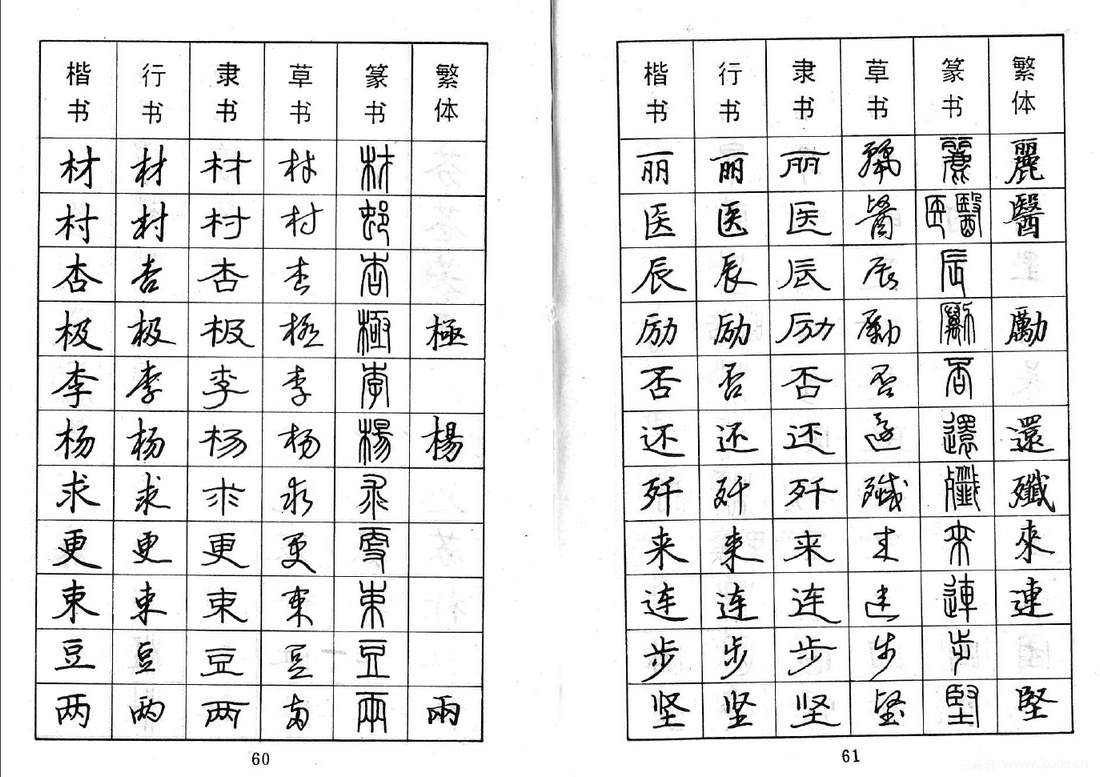 楷书 行书 隶书 草书 篆书 繁体
材 材 材 材 材
村 村 村 村 邨
杏 杏 杏 杏 杏
极 极 极 極 極 極
李 李 李 李 李
杨 杨 杨 杨 楊 楊
求 求 求 求 求
更 更 更 更 更
束 束 束 束 束
豆 豆 豆 豆 豆
两 两 两 两 兩 兩
60
楷书 行书 隶书 草书 篆书 繁体
丽 丽 丽 麗 麗
医 医 医 醫 医醫 醫
辰 辰 辰 辰 辰
励 励 励 勵 勵
否 否 否 否 否
还 还 还 还 還 還
歼 歼 歼 殲 殲 殲
来 来 来 来 來 來
连 连 连 连 連 連
步 步 步 步 步
坚 坚 坚 坚 堅 堅
61